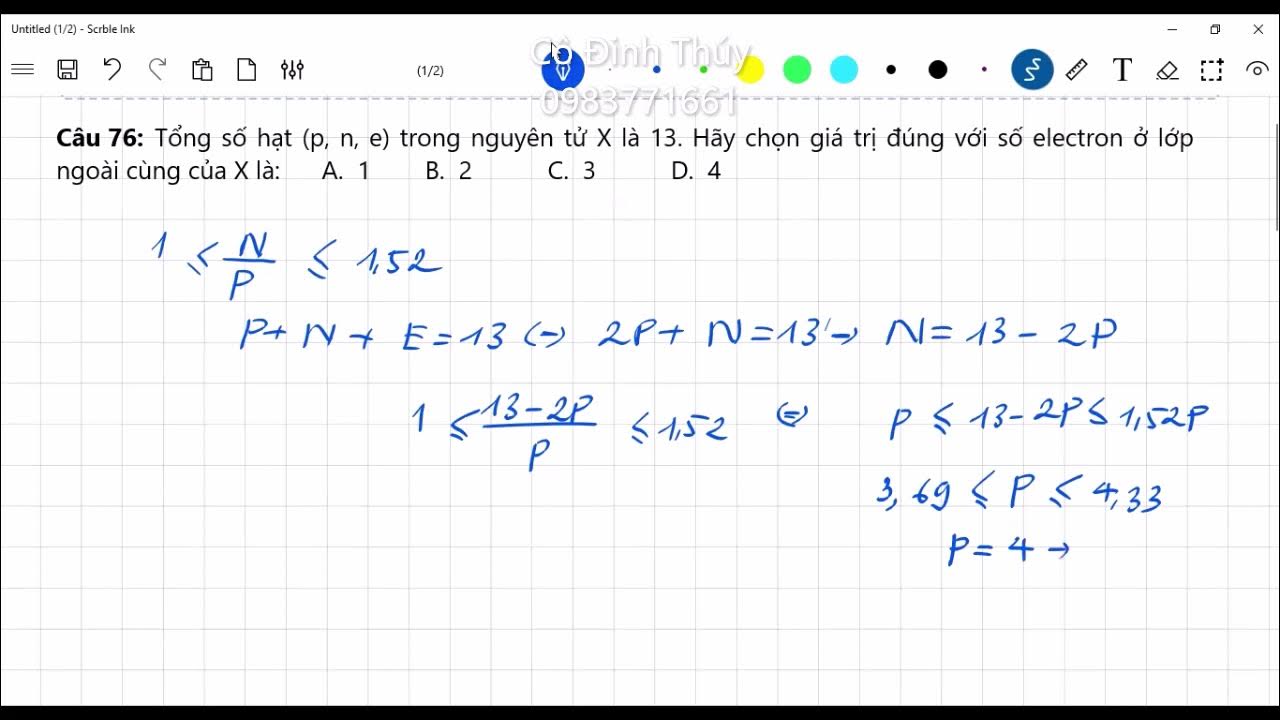 Untitled (1/2) - Scrble Ink
(1/2)
T
Cô Đinh Thúy
0983771661
Câu 76: Tổng số hạt (p, n, e) trong nguyên tử X là 13. Hãy chọn giá trị đúng với số electron ở lớp
ngoài cùng của X là: A. 1 B. 2 C. 3 D. 4
1 ≤ N/P ≤ 1,52
P + N + E = 13 (-) 2P + N = 13 → N = 13 - 2P
1 ≤ (13 - 2P)/P ≤ 1,52 (=) P ≤ 13 - 2P ≤ 1,52P
3,69 ≤ P ≤ 4,33
P = 4 →